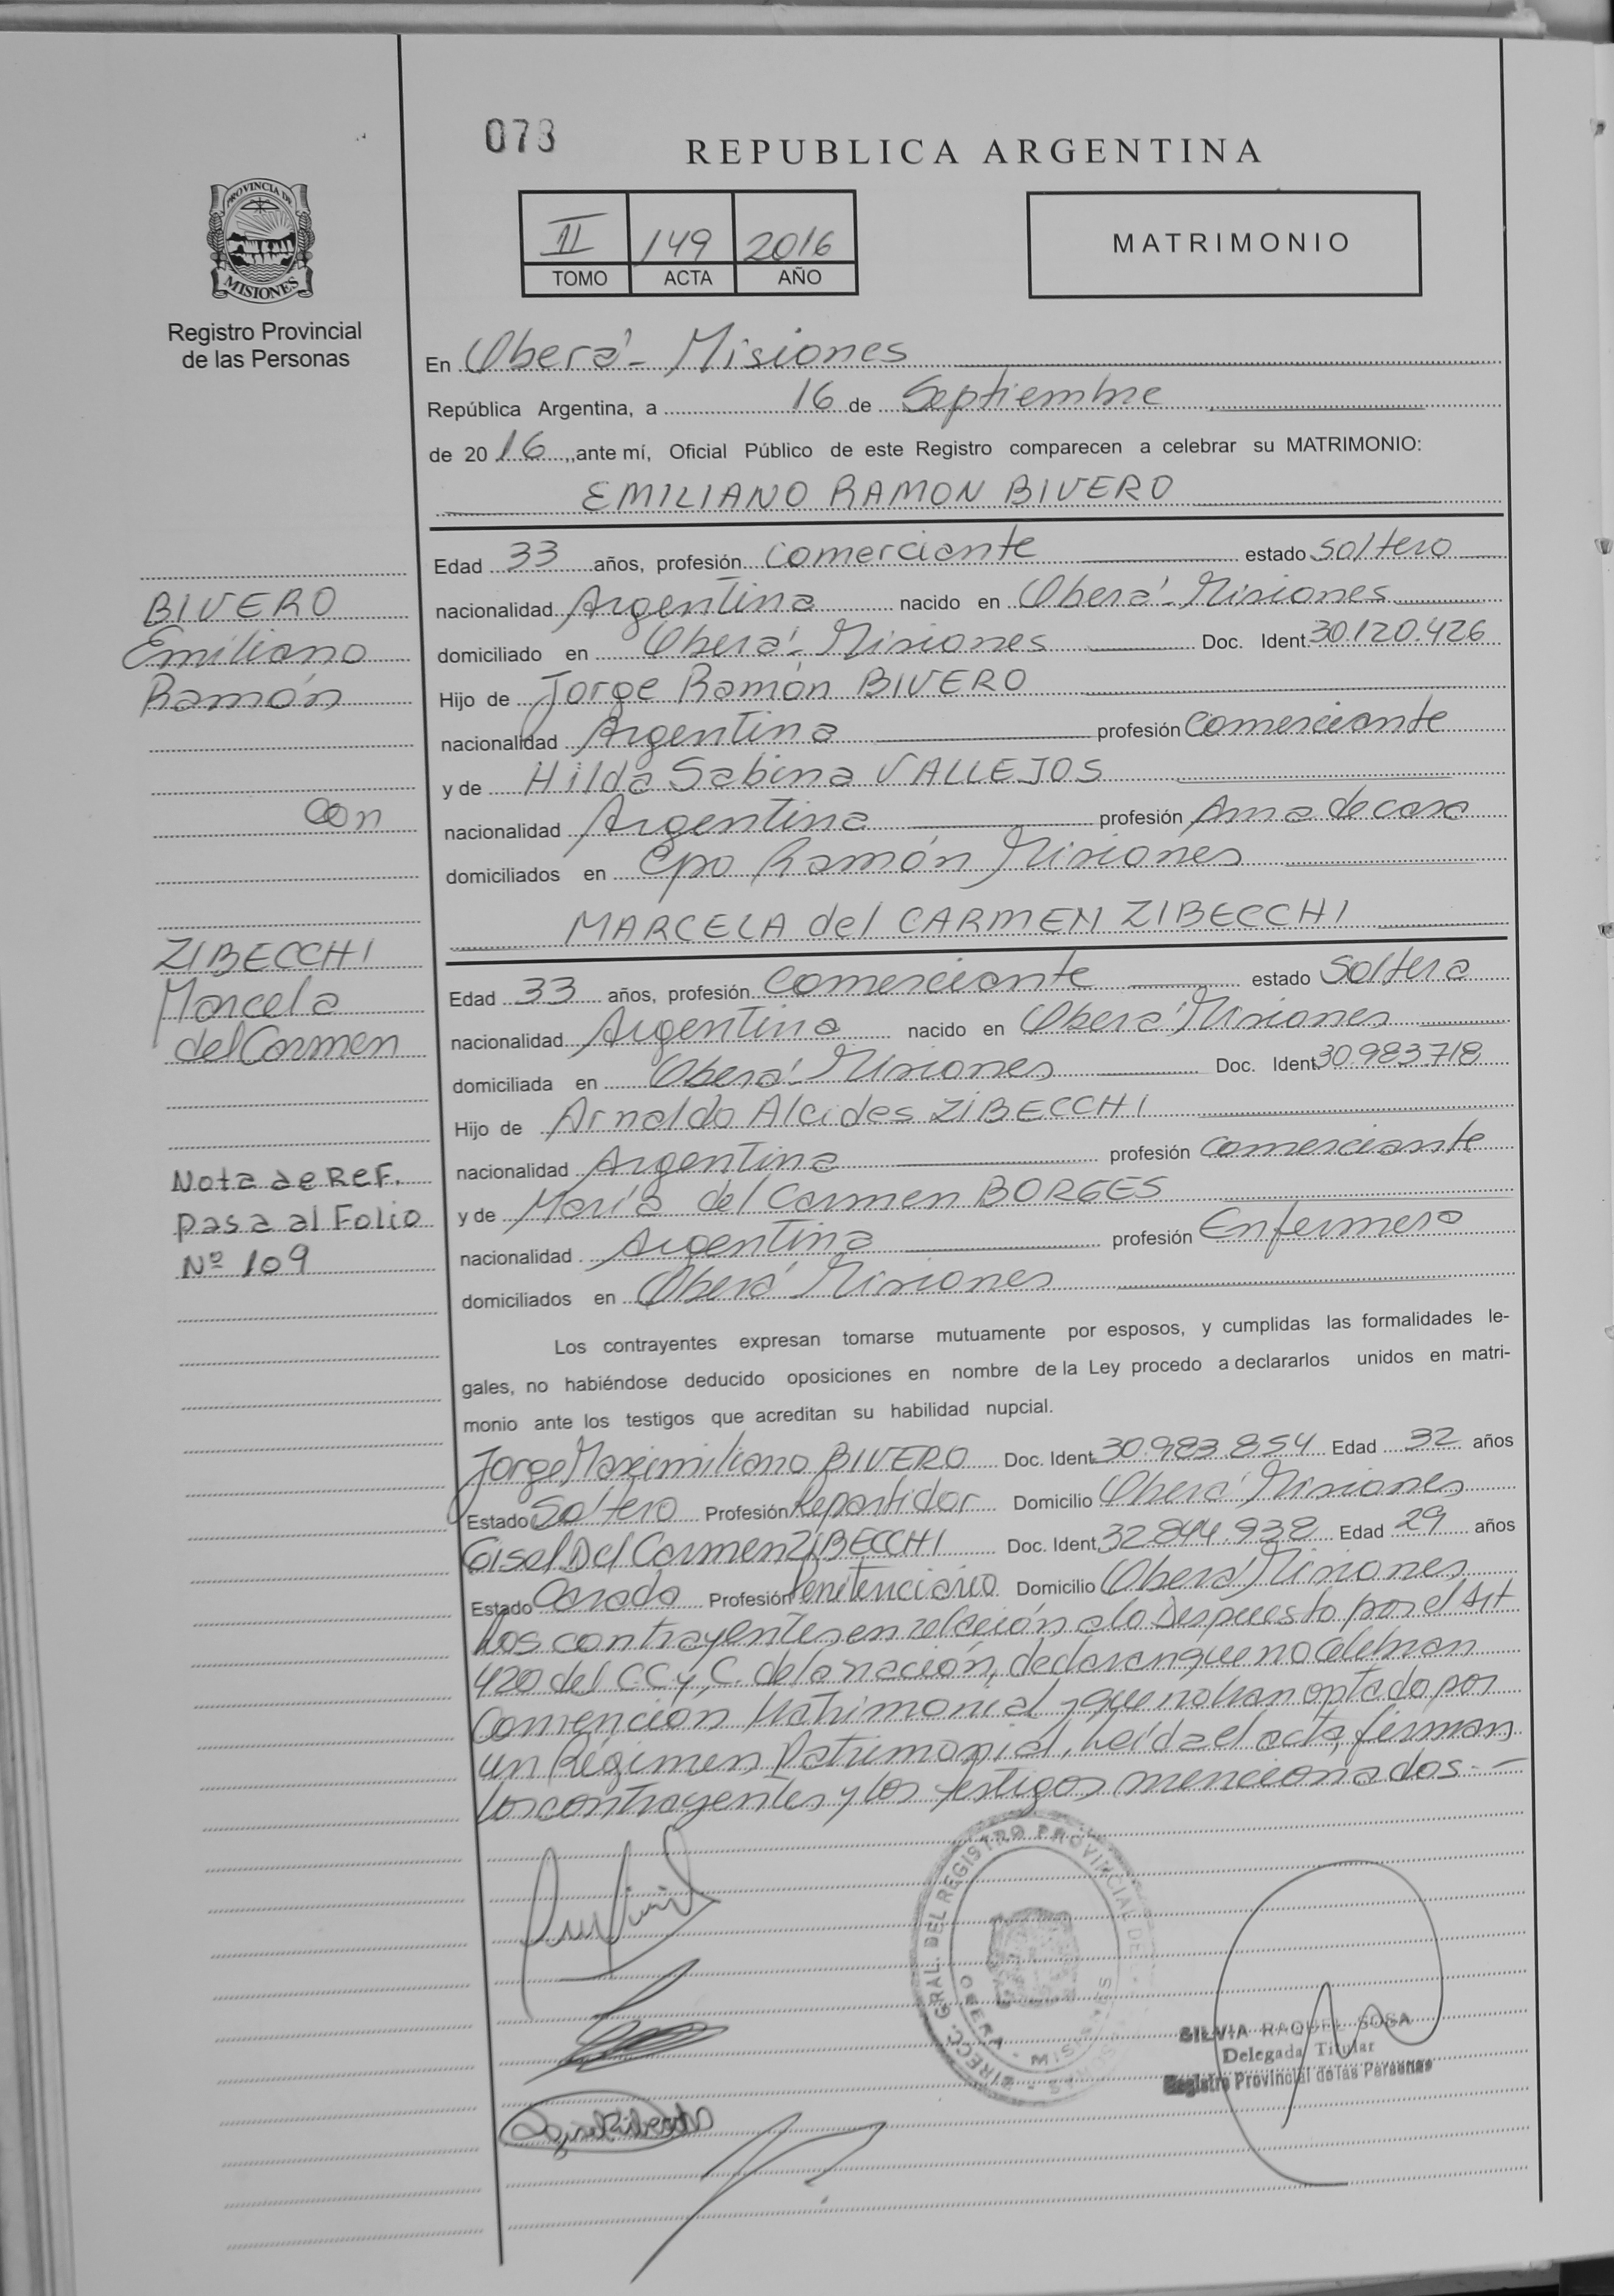 073
REPUBLICA ARGENTINA
PROVINCIA DE
MISIONES
Registro Provincial
de las Personas
II 149 2016
TOMO ACTA AÑO
MATRIMONIO
En Oberá - Misiones
República Argentina, a 16 de Septiembre
de 2016, ante mí, Oficial Público de este Registro comparecen a celebrar su MATRIMONIO:
EMILIANO RAMON BIVERO
Edad 33 años, profesión comerciante estado soltero
nacionalidad Argentina nacido en Oberá - Misiones
domiciliado en Oberá - Misiones Doc. Ident. 30.120.426
Hijo de Jorge Ramón BIVERO
nacionalidad Argentina profesión comerciante
y de Hilda Sabina VALLEJOS
nacionalidad Argentina profesión Ama de casa
domiciliados en Cpo Ramón Misiones
MARCELA del CARMEN ZIBECCHI
Edad 33 años, profesión comerciante estado soltera
nacionalidad Argentina nacido en Oberá Misiones
domiciliada en Oberá - Misiones Doc. Ident. 30.983.718
Hijo de Arnaldo Alcides ZIBECCHI
nacionalidad Argentina profesión comerciante
y de María del Carmen BORGES
nacionalidad Argentina profesión Enfermera
domiciliados en Oberá Misiones
BIVERO
Emiliano
Ramón
con
ZIBECCHI
Marcela
del Carmen
Nota de Ref.
pasa al Folio
Nº 109
Los contrayentes expresan tomarse mutuamente por esposos, y cumplidas las formalidades le-
gales, no habiéndose deducido oposiciones en nombre de la Ley procedo a declararlos unidos en matri-
monio ante los testigos que acreditan su habilidad nupcial.
Jorge Maximiliano BIVERO Doc. Ident. 30.983.854 Edad 32 años
Estado Soltero Profesión Repartidor Domicilio Oberá Misiones
Gisel Del Carmen ZIBECCHI Doc. Ident. 32844.938 Edad 29 años
Estado Casada Profesión Penitenciario Domicilio Oberá Misiones
Los contrayentes en relación a lo Despuesto por el Art
420 del C.C y C. de la nación, declaran que no celebran
Convención Matrimonial y que no han optado por
un Régimen Patrimonial, Leída el acta, firman
los contrayentes y los testigos mencionados.-
DIRECC. GRAL. DEL REGISTRO PROVINCIAL DE
OBERA - MISIONES
SILVIA RAQUEL SOSA
Delegada Titular
Registro Provincial de las Personas